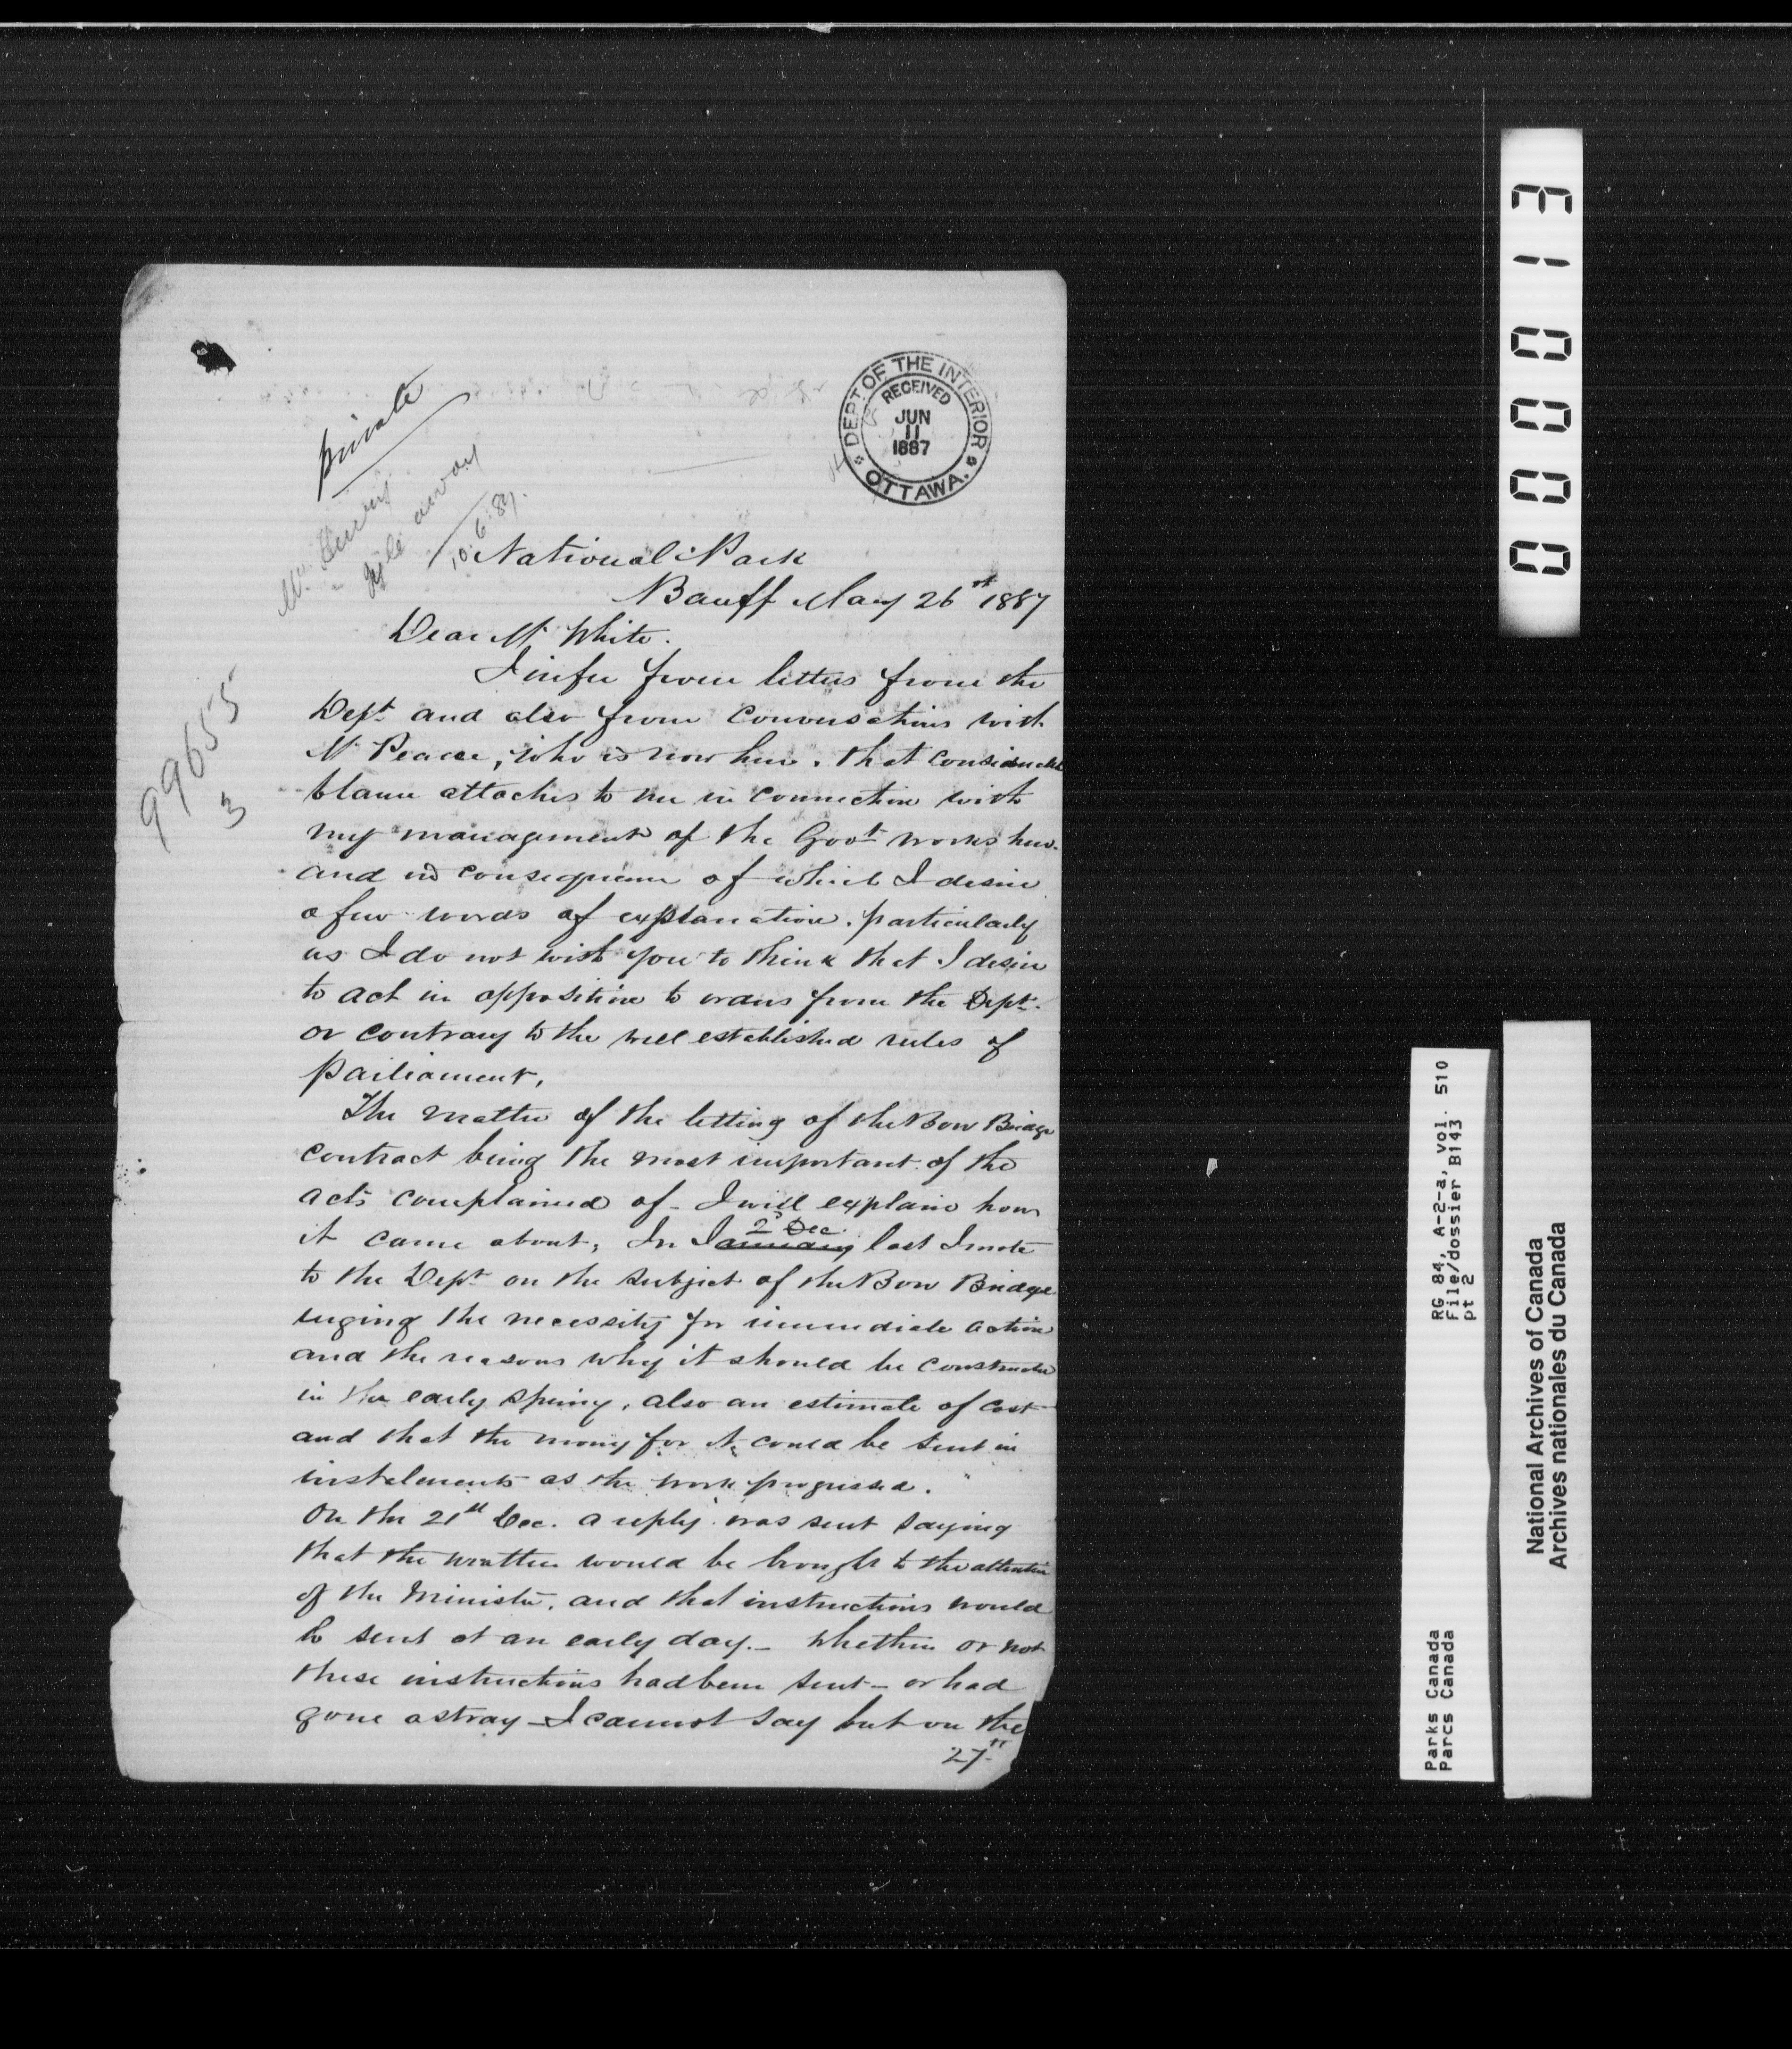 private
Mr
file away
10.6.87.
DEPT. OF THE INTERIOR
RECEIVED
JUN
11
1887
OTTAWA.
99655
3
National Park
Banff May 26th 1887
Dear Mr White.
I infer from letters from the
Dept and also from conversations with
Mr Pearce, who is now here, that considerable
blame attaches to me in connection with
my management of the Govt works here.
and in consequence of which I desire
a few words of explanation. particularly
as I do not wish you to think that I desire
to act in opposition to orders from the Dept.
or contrary to the well established rules of
Parliament.
The matter of the letting of the Bow Bridge
contract being the most important of the
acts complained of - I will explain how
2d Dec.
it came about, In January last I wrote
to the Dept on the subject of the Bow Bridge
urging the necessity for immediate action
and the reasons why it should be constructed
in the early spring, also an estimate of cost
and that the money for it could be sent in
instalements as the work progressed.
On the 21st Dec. a reply was sent saying
that the matter would be brought to the attention
of the Minister, and that instructions would
be sent at an early day. - Whether or not
these instructions had been sent - or had
gone astray - I cannot say but on the
27th
000013
RG 84, A-2-a, vol. 510
File/dossier B143
pt 2
Parks Canada
Parcs Canada
National Archives of Canada
Archives nationales du Canada